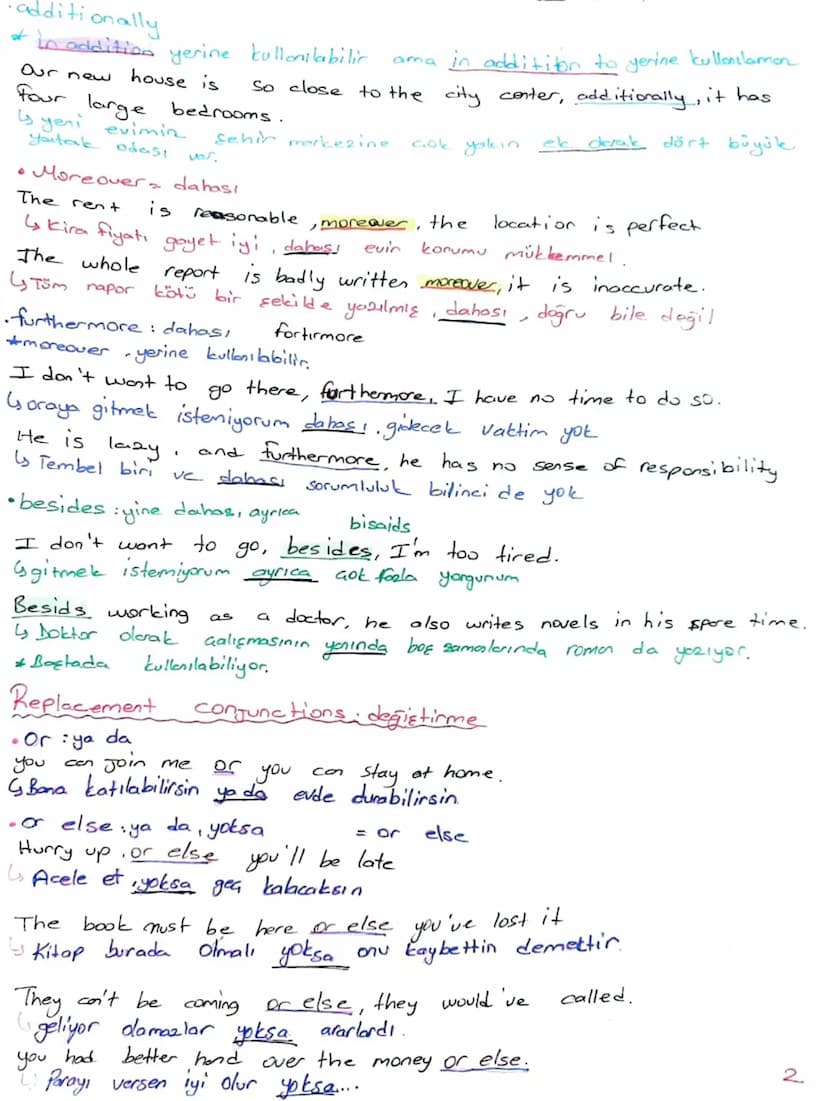 ·additionally
* in addition yerine kullanılabilir ama in addition to yerine kullanılamaz
Our new house is so close to the city center, additionally, it has
four large bedrooms.
↳ yeni evimin şehir merkezine çok yakın ek olarak dört büyük
yatak odası var.
• Moreover = dahası
The rent is reasonable, moreover, the location is perfect
↳ Kira fiyatı gayet iyi, dahası evin konumu mükkemmel.
The whole report is badly written moreover, it is inaccurate.
↳ Tüm rapor kötü bir şekilde yazılmış, dahası, doğru bile değil
·furthermore : dahası fortırmore
*moreover yerine kullanılabilir.
I don't want to go there, furthermore, I have no time to do so.
↳ oraya gitmek istemiyorum dahası, gidecek vaktim yok
He is lazy, and furthermore, he has no sense of responsibility
↳ Tembel biri ve dahası sorumluluk bilinci de yok
•besides : yine dahası, ayrıca bisaids
I don't want to go, besides, I'm too tired.
↳ gitmek istemiyorum ayrıca çok fazla yorgunum
Besids working as a doctor, he also writes novels in his spare time.
↳ Doktor olarak çalışmasının yanında boş zamanlarında roman da yazıyor.
* Başta da kullanılabiliyor.
Replacement conjunctions : değiştirme
•Or : ya da
you can join me or you can stay at home.
↳ Bana katılabilirsin ya da evde durabilirsin
•or else : ya da, yoksa = or else
Hurry up, or else you'll be late
↳ Acele et, yoksa geç kalacaksın
The book must be here or else you've lost it
↳ Kitap burada olmalı yoksa onu kaybettin demektir.
They can't be coming or else, they would've called.
↳ geliyor olamazlar yoksa ararlardı.
you had better hand over the money or else.
↳ Parayı versen iyi olur yoksa...
2